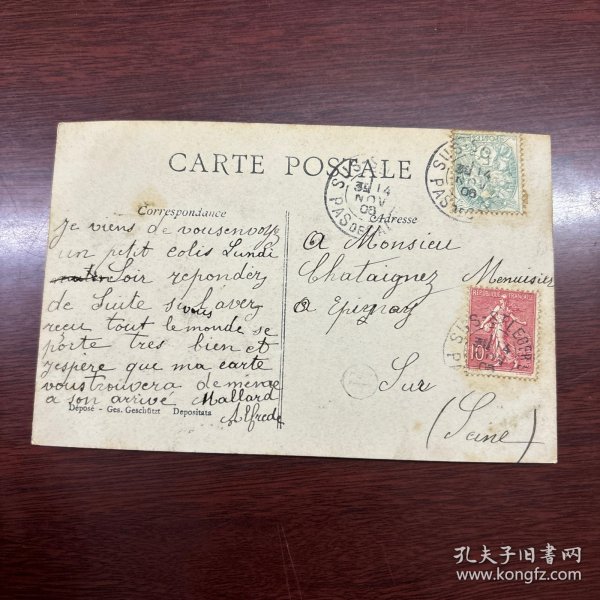 CARTE POSTALE
Correspondance
Adresse
je viens de vousenvoye
un petit colis Lundi
Soir repondez
de Suite si vous lavez
reçu tout le monde se
porte tres bien et
jespere que ma carte
vous trouvera de même
a son arrivé Mallard
Alfrede
Déposé - Ges. Geschützt Depositata
A Monsieur
Chataignez Menuisier
a Epignay
Sur
(Seine)
14
NOV
REPUBLIQUE FRANÇAISE
10
孔夫子旧书网
www.kongfz.com